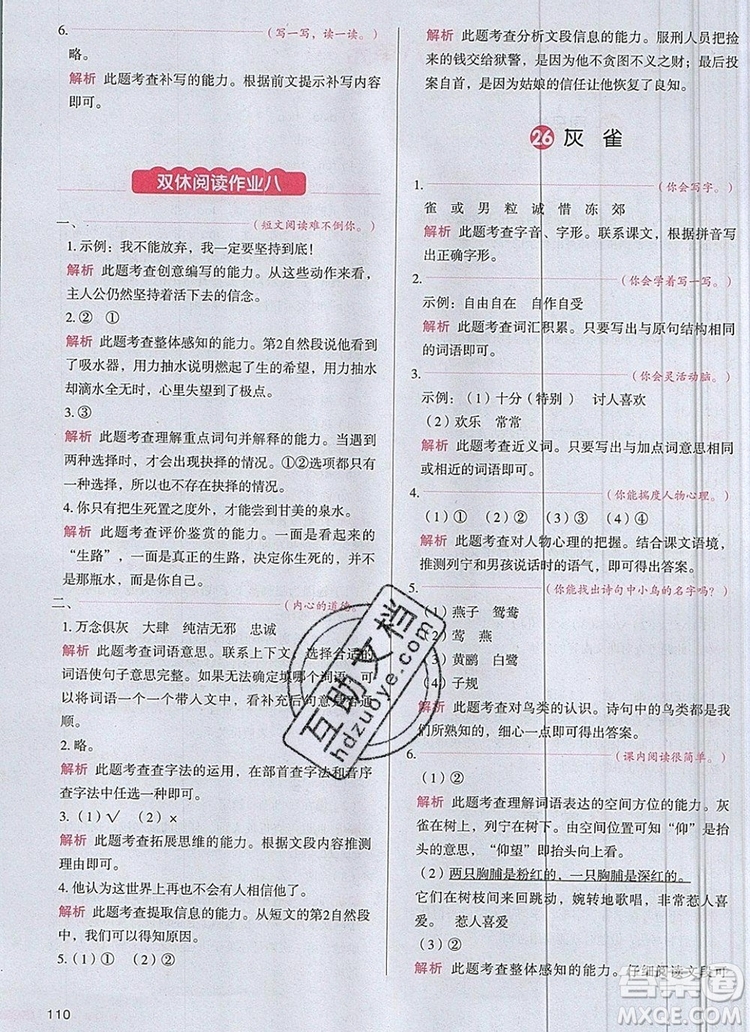 6.（写一写，读一读。）
略。
解析 此题考查补写的能力。根据前文提示补写内容
即可。
双休阅读作业八
一、（短文阅读难不倒你。）
1. 示例：我不能放弃，我一定要坚持到底！
解析 此题考查创意编写的能力。从这些动作来看，
主人公仍然坚持着活下去的信念。
2. ② ①
解析 此题考查整体感知的能力。第2自然段说看到
了吸水器，用力抽水说明燃起了生的希望，用力抽水
却滴水全无，心里失望到了极点。
3. ③
解析 此题考查理解重点词句并解释的能力。当遇到
两种选择时，才会出现抉择的情况。①②选项说的都是
一种选择，没有出现抉择的情况。
4. 你只有把生死置之度外，才能尝到甘美的泉水。
解析 此题考查评价鉴赏的能力。一面是看起来的
“生路”，一面是真正的生路，你居然在生死之间给了
那瓶水，才让你有了生路。
二、（内心的道德
1. 万念俱灰 大肆 纯洁无邪 忠诚
解析 此题考查词语意思。联系上下文，选择合适的
词语使句子意思完整。如果无法确定填哪个词语，可
以将词语一个一个带入文中，看补充后句意是否通
顺。
2. 略。
解析 此题考查查字法的运用，在部首查字法和音序
查字法中，部首查字法是难点。
3.（1）√ （2）×
解析 此题考查拓展思维的能力。根据文段内容推测
理由即可。
4. 他认为这世界上再也不会有人相信他了。
解析 此题考查提取信息的能力。从短文的第2自然段
中，我们可以得知原因。
5.（1）① （2）①
110
解析 此题考查分析文段信息的能力。服刑人员把捡
来的钱交给狱警，是因为他不贪图不义之财；最后投
案自首，是因为姑娘的信任让他恢复了良知。
26 灰雀
1.（你会写字。）
雀 或 男 粒 诚 惜 冻 郊
解析 此题考查字音、字形。联系课文，根据拼音写
出正确字形。
2.（你会学着写一写。）
示例：自由自在 自作自受
解析 此题考查词汇积累。只要写出与原句结构一致
的词语即可。
3.（你会灵活动脑。）
示例：（1）十分（特别） 讨人喜欢
（2）欢乐 常常
解析 此题考查近义词。只要写出与加点词意思相同
或相近的词语即可。
4.（你能揣度人物心理。）
（1）① （2）② （3）① （4）②
解析 此题考查对人物心理的把握。结合课文语境，
推测列宁和男孩说话时的心理，即可得出答案。
5.（你能找出诗句中小鸟的名字吗？）
（1）燕子 鸳鸯
（2）莺 燕
（3）黄鹂 白鹭
（4）子规
解析 此题考查对鸟类的认识。诗句中的鸟类都是我
们所熟知的，细心一点即可得出答案。
6.（课内阅读很简单。）
（1）②
解析 此题考查理解词语表达的空间方位的能力。灰
雀在树上，列宁在树下。所以要往上看，“仰”是
抬头的意思，“仰望”即抬头向上看。
（2）两只胸脯是粉红的，一只胸脯是深红的。
它们在树枝间来回跳动，婉转地歌唱，非常惹人喜
爱。 惹人喜爱
（3）②
解析 此题考查整体感知的能力。仔细阅读文段可
互助文档
hdzuoye.com
答案圈
MXQE.COM